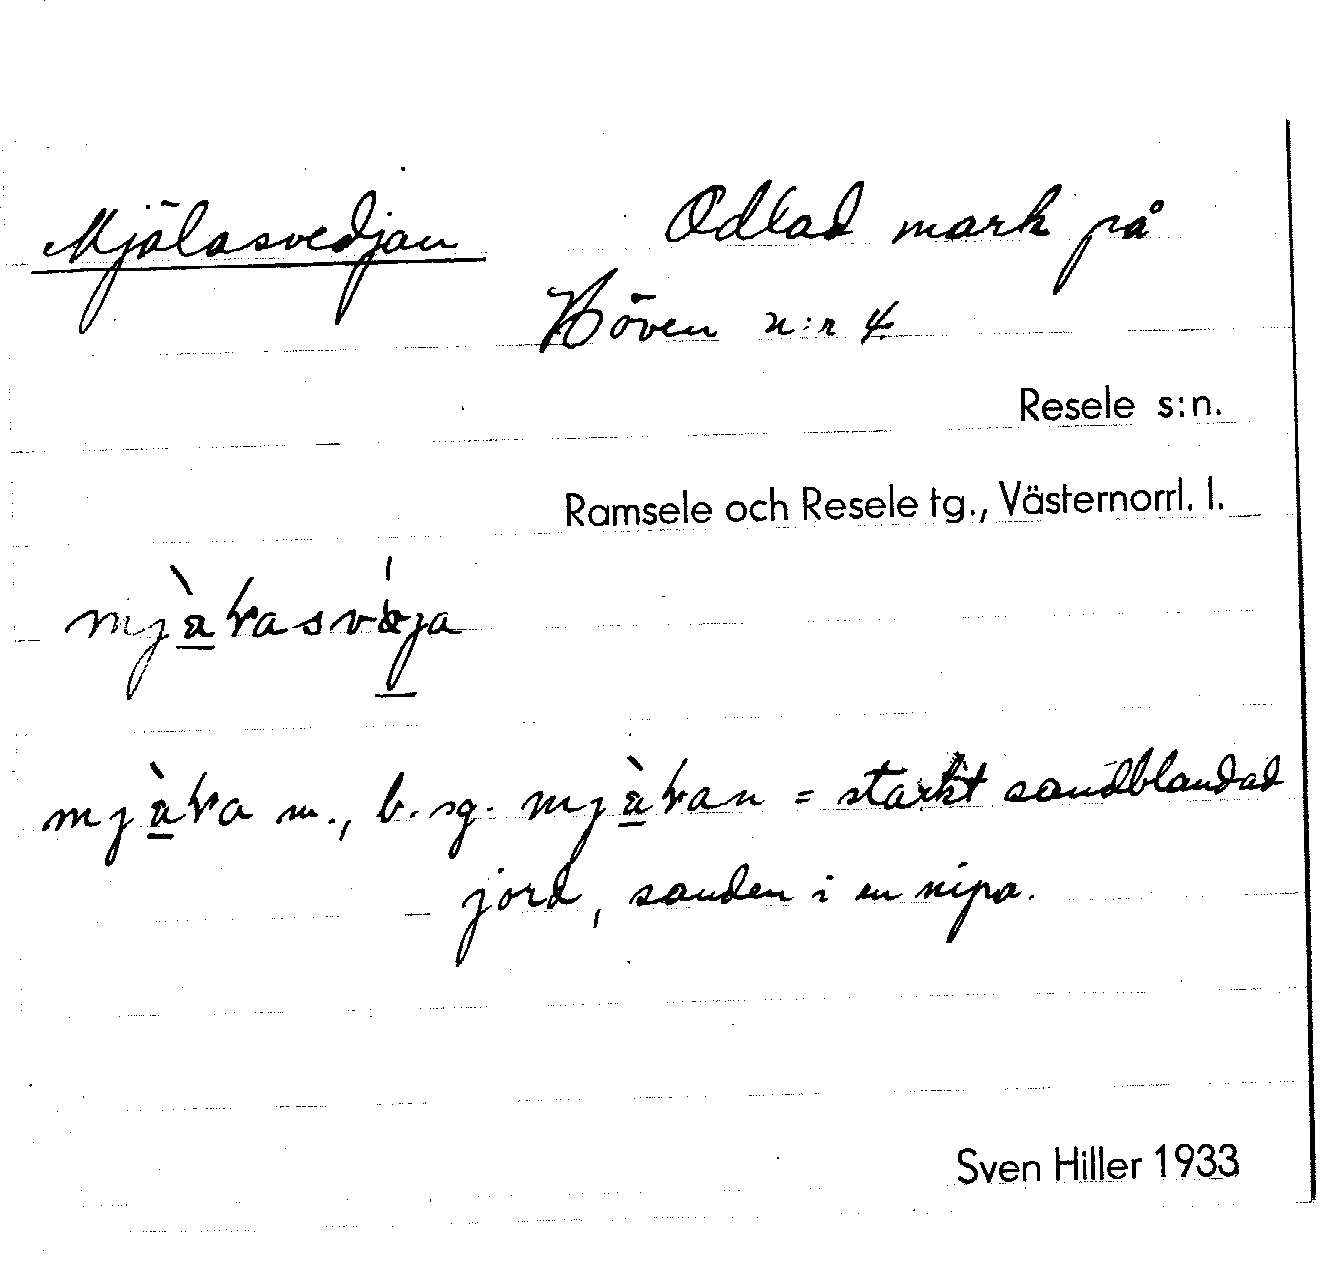 Mjälasvedjan Odlad mark på
Höven n:r 4
Resele s:n.
Ramsele och Resele tg., Västernorrl. l.
m., b. sg. = starkt sandblandad
jord, sanden i en nipa.
Sven Hiller 1933